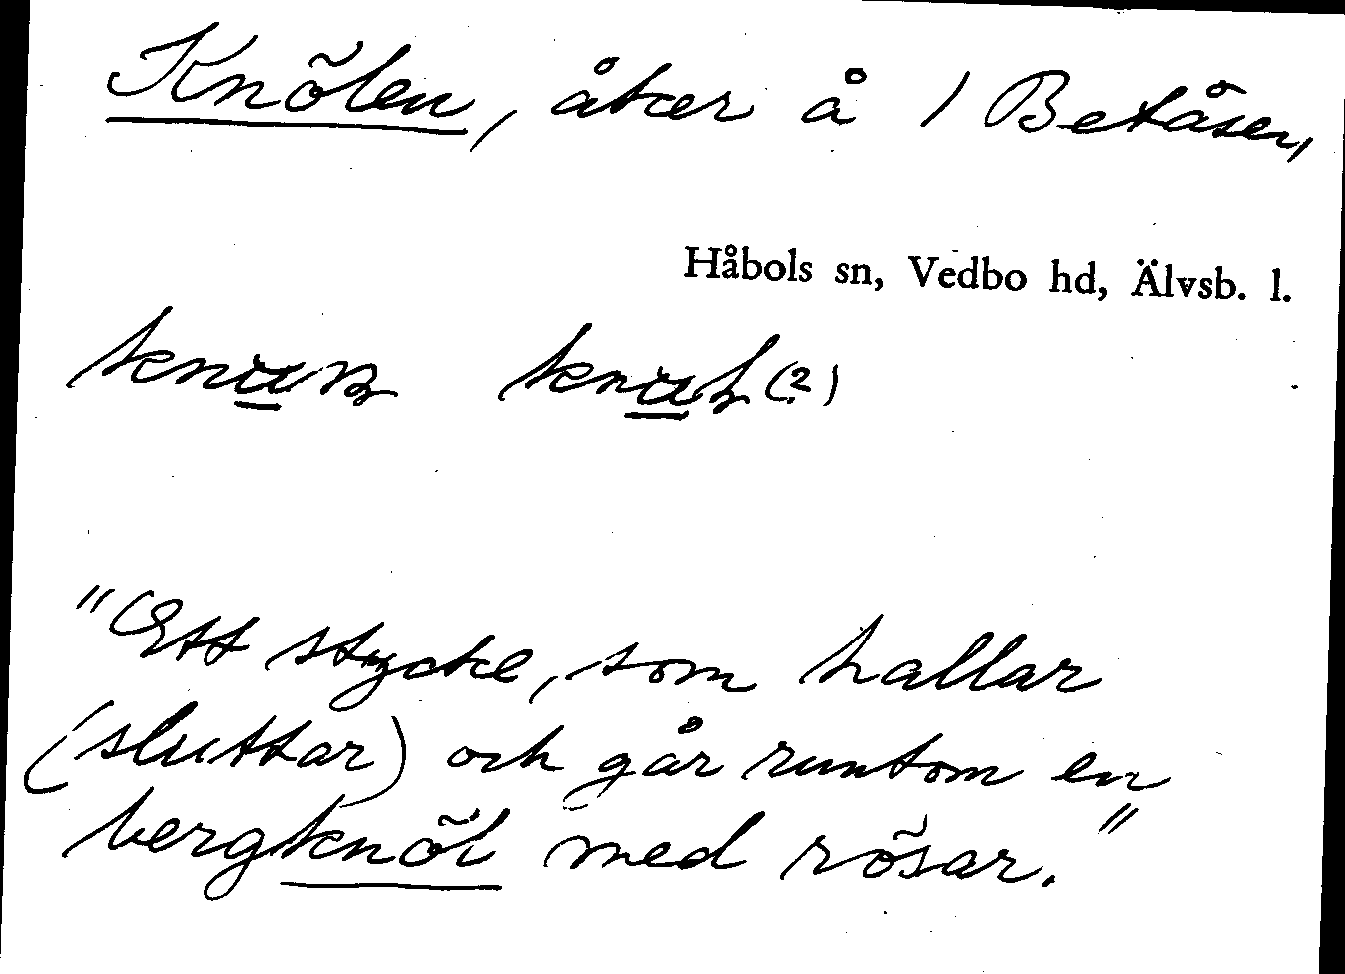 Knölen, åker å 1 Betåsen,
Håbols sn, Vedbo hd, Älvsb. l.
(2)
"Ett stycke, som hallar
(sluttar) och går runtom en
bergknöl med rösar."